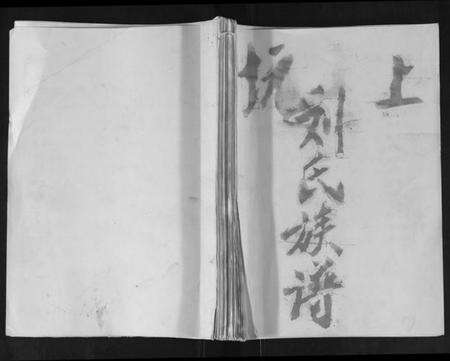 上坑
刘氏族谱